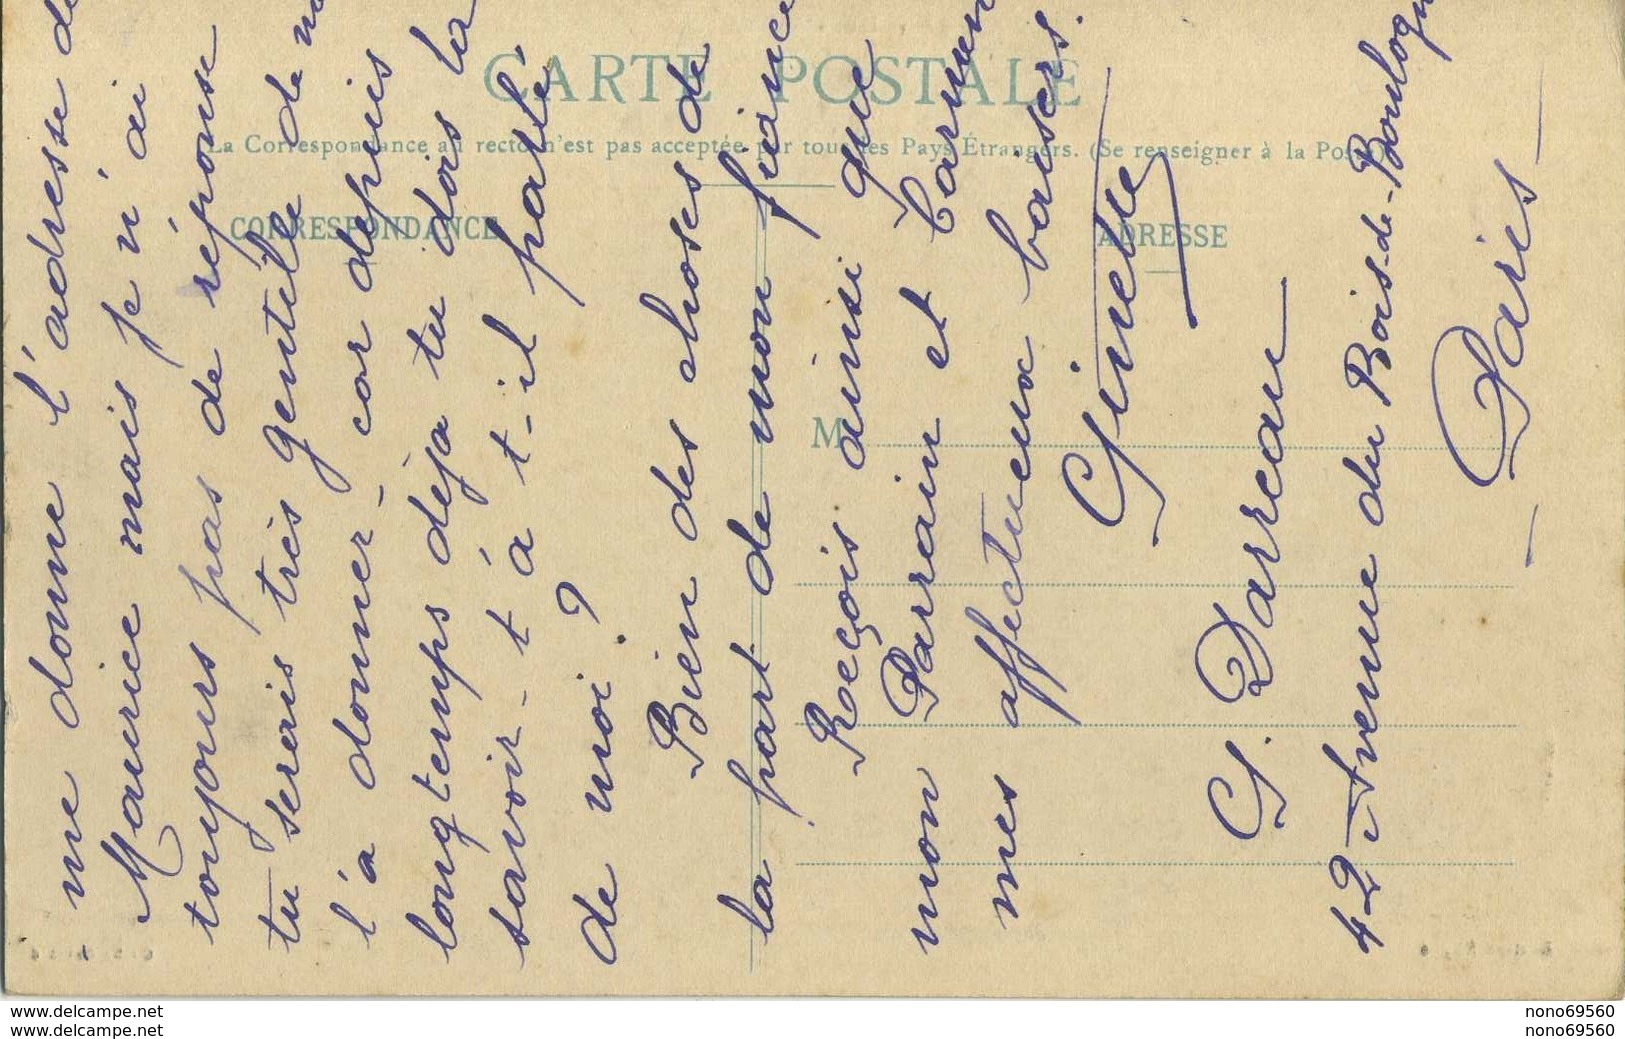 CARTE POSTALE
La Correspondance au recto n'est pas acceptée par tous les Pays Étrangers. (Se renseigner à la Poste)
CORRESPONDANCE
ADRESSE
M
me donne l'adresse de
Maurice mais je n'ai
toujours pas de réponse
tu serais très gentille de
l'a donner - car depuis
longtemps déja tu dois la
savoir - t'à t-il parlé
de moi ?
Bien des choses de
la part de mon fiancé
Reçois ainsi que
mon Parrain et
mes affectueux baisers.
Ginette
G. Darreau
42 Avenue du Bois-de-Boulogne
- Paris -
nono69560
nono69560
www.delcampe.net
www.delcampe.net